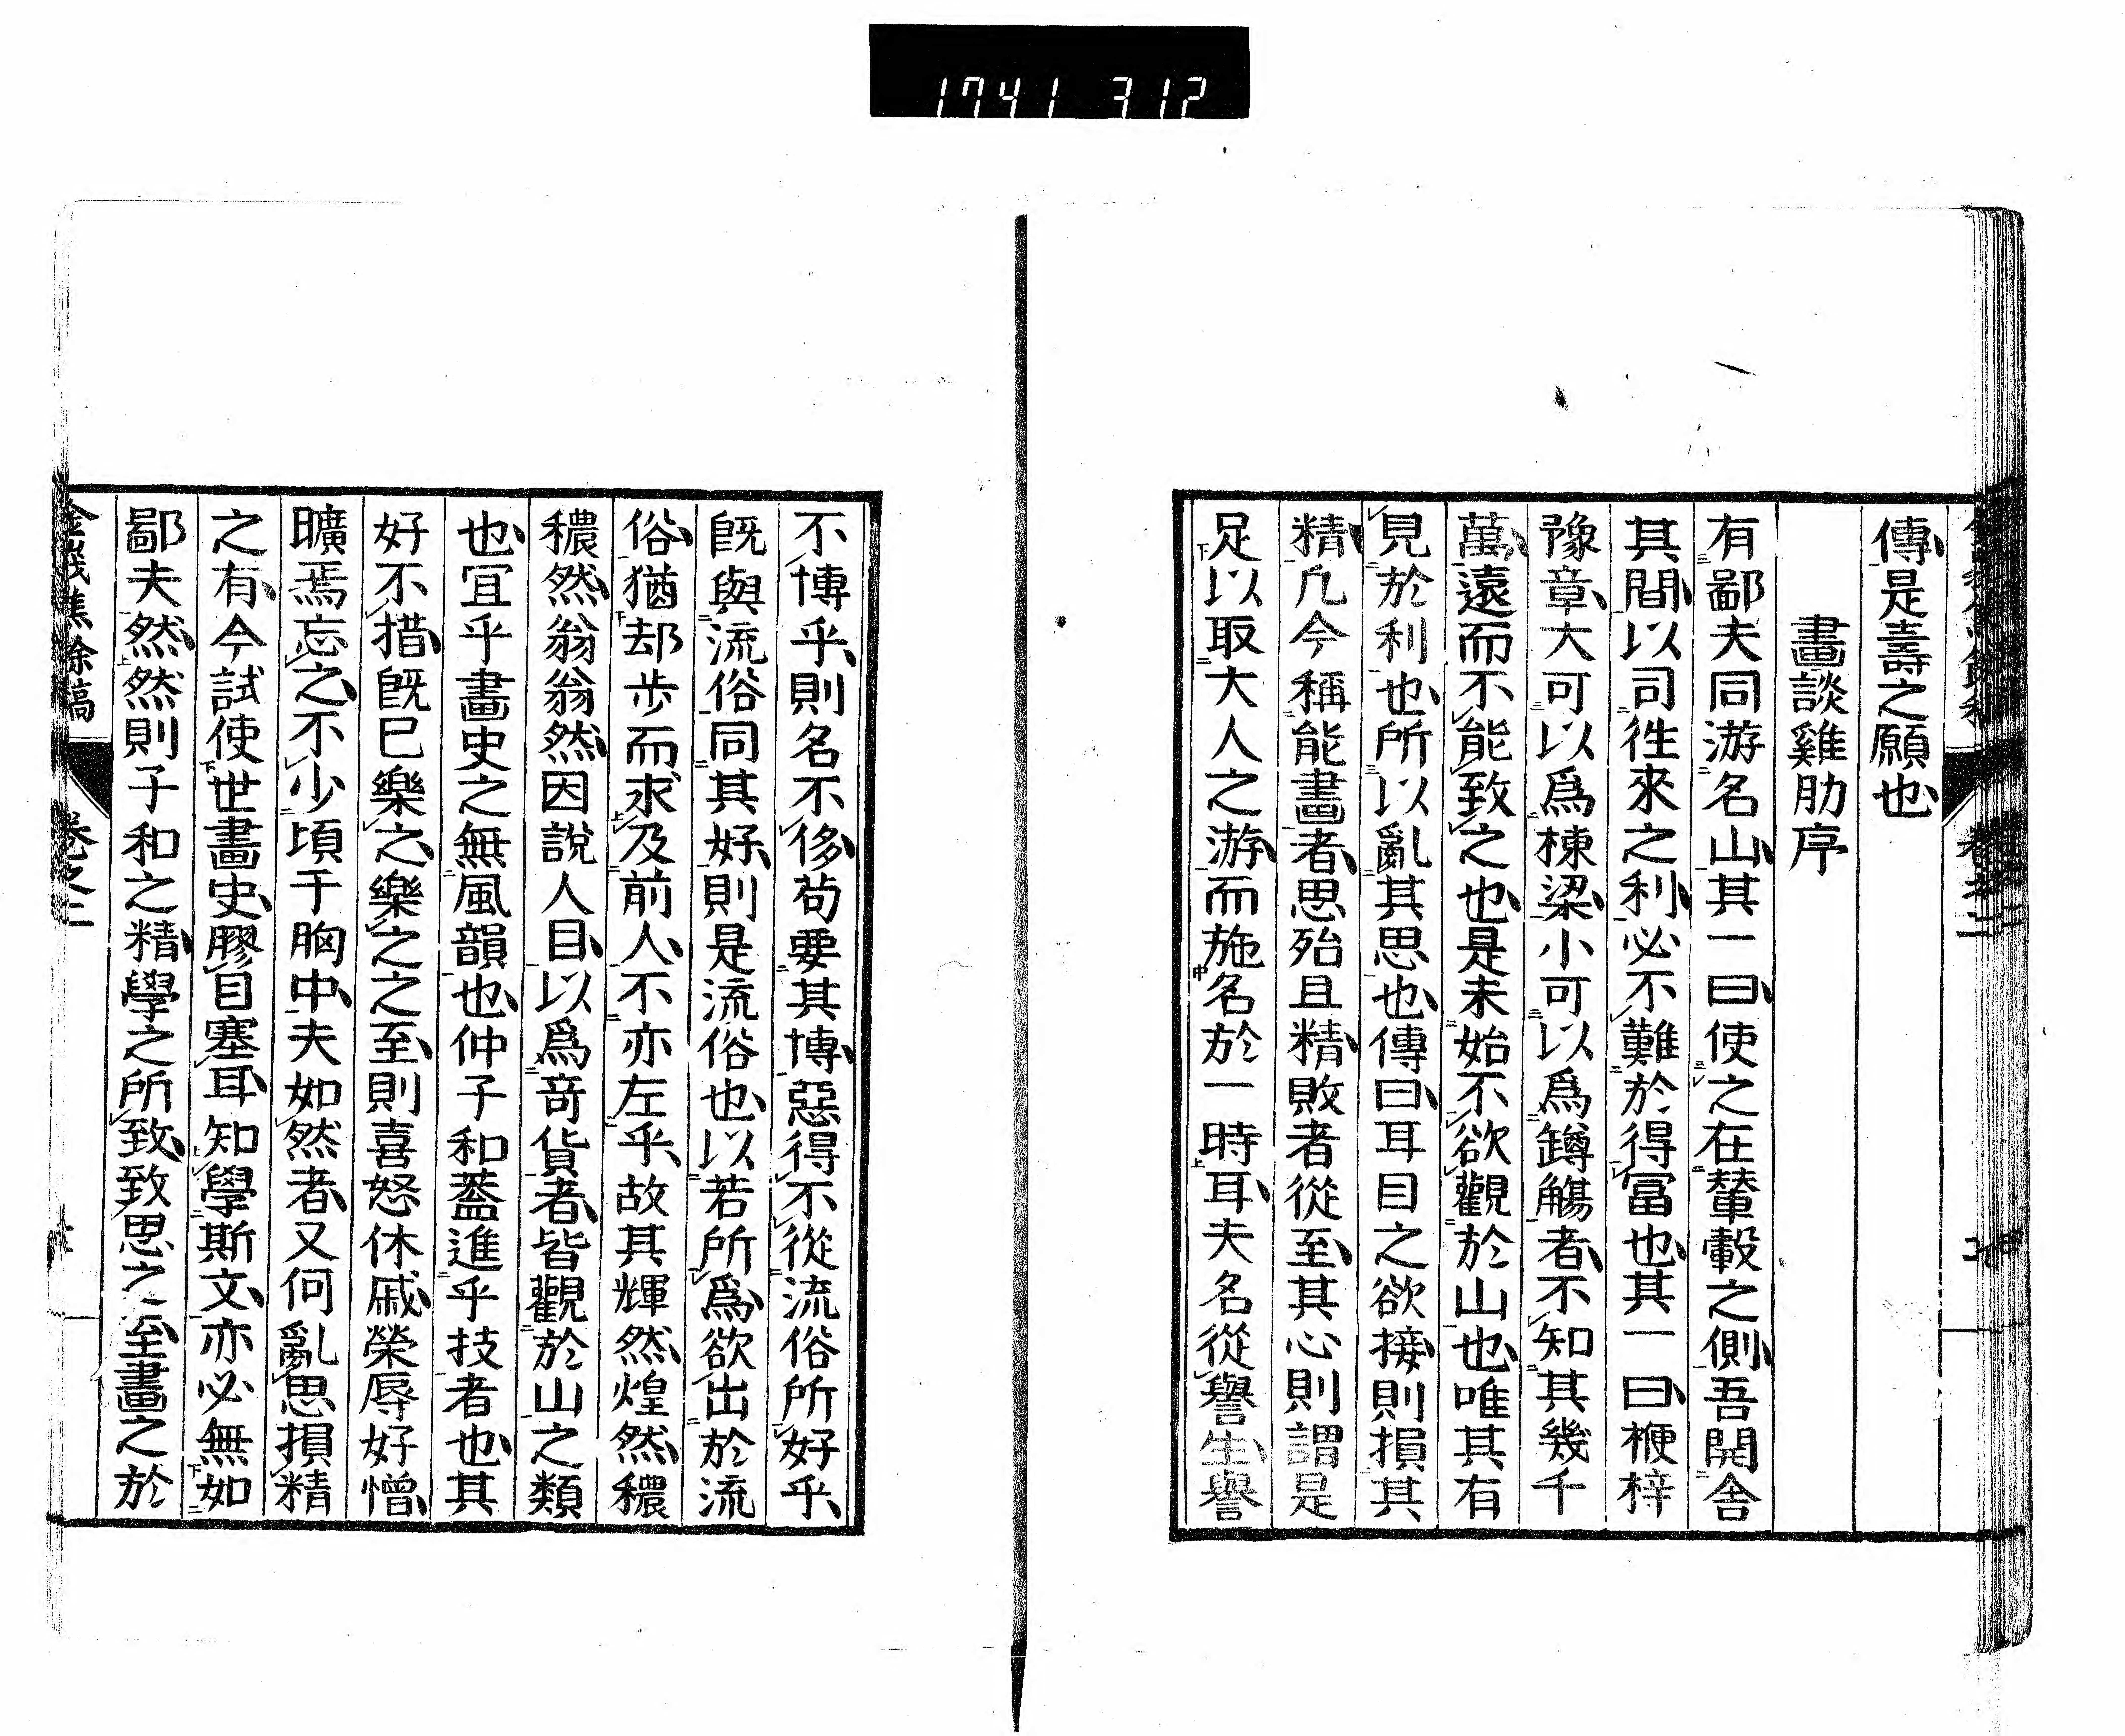 1741 312
傳是壽之願也
畫談雞肋序
有鄙夫同游名山其一曰使之在輦轂之側吾開舍
其間以司徃來之利必不難於得冨也其一曰楩梓
豫章大可以爲棟梁小可以爲罇觴者不知其幾千
萬遠而不能致之也是未始不欲觀於山也唯其有
見於利也所以亂其思也傳曰耳目之欲接則損其
精凢今稱能畫者思殆且精敗者從至其心則謂是
足以取大人之游而施名於一時耳夫名從譽生譽
不博乎則名不侈苟要其博惡得不從流俗所好乎
旣與流俗同其好則是流俗也以若所爲欲出於流
俗猶却步而求及前人不亦左乎故其輝然煌然穠
穠然翁翁然因說人目以爲竒貨者皆觀於山之類
也宜乎畫史之無風韻也仲子和蓋進乎技者也其
好不措旣巳樂之樂之之至則喜怒休戚榮辱好憎
曠焉忘之不少頃于胸中夫如然者又何亂思損精
之有今試使世畫史膠目塞耳知學斯文亦必無如
鄙夫然然則子和之精學之所致致思之至畫之於
金峩樵餘稿
卷之二